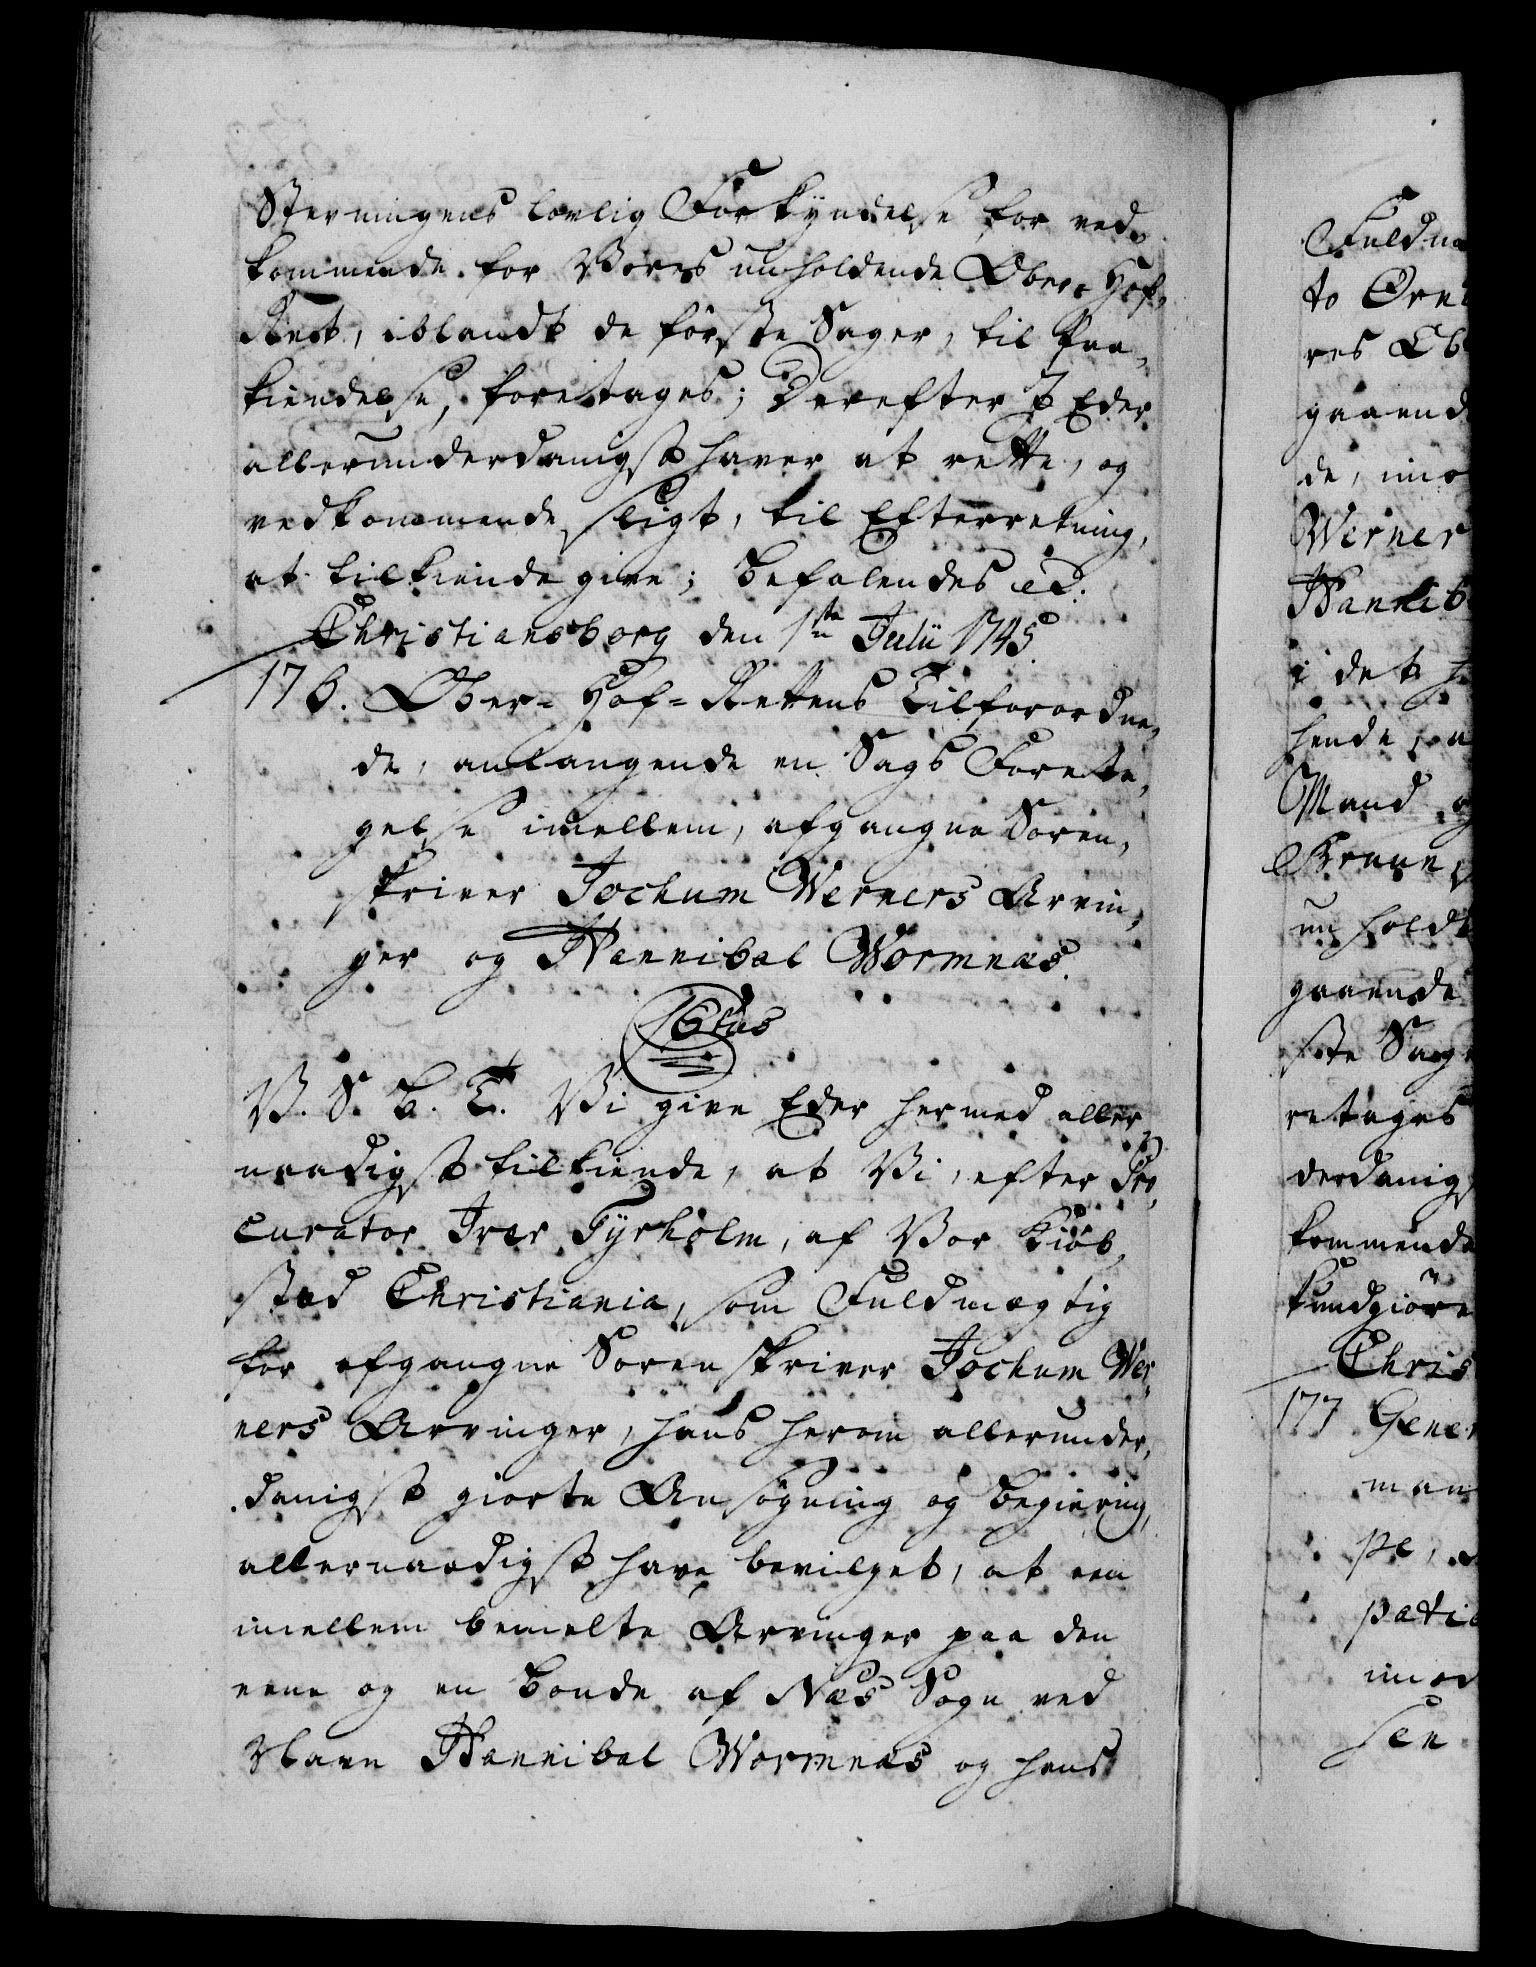 Stevningens lovlig Forkyndelse for ved,
kommende for Vores nu holdende Ober-Hof-
Rett, iblandt de første Sager, til Paa,
kiendelse, foretages; Derefter I Eder
allerunderdanigst haver at rette, og
vedkommende sligt, til Efterretning,
at tilkiende give; Befalendes etc.
Christiansborg den 1ste Julii 1745
176. Ober-Hof-Rettens Tilforordne,
de, anlangende en Sags Foreta,
gelse imellem, afgangne Soren,
skriver Jochum Werners Arvin,
ger og Hannibal Wormnæs.
V. S. B. T. Vi give Eder hermed aller,
naadigst tilkiende, at Vi, efter Pro,
curator Iver Tyrholm, af Vor Kiøb,
stad Christiania, som Fuldmægtig
for afgangne Sorenskriver Jochum Wer,
ners Arvinger, hans herom allerunder,
danigst giorte Ansøgning og Begiering,
allernaadigst have bevilget, at een
imellem bemelte Arvinger paa den
eene og en Bonde af Næs Sogn ved
Navn Hannibal Wormnæs og hans
Fuldm
to Øre
res Ob
gaaend
de, imo
Werner
Hannib
i det h
hende, a
Mand og
Krone,
nu hold
gaaende
ste Sag
retages
derdanigs
kommende
kundgiøre
Chris
177 Gene
man
pe,
patri
imod
sen